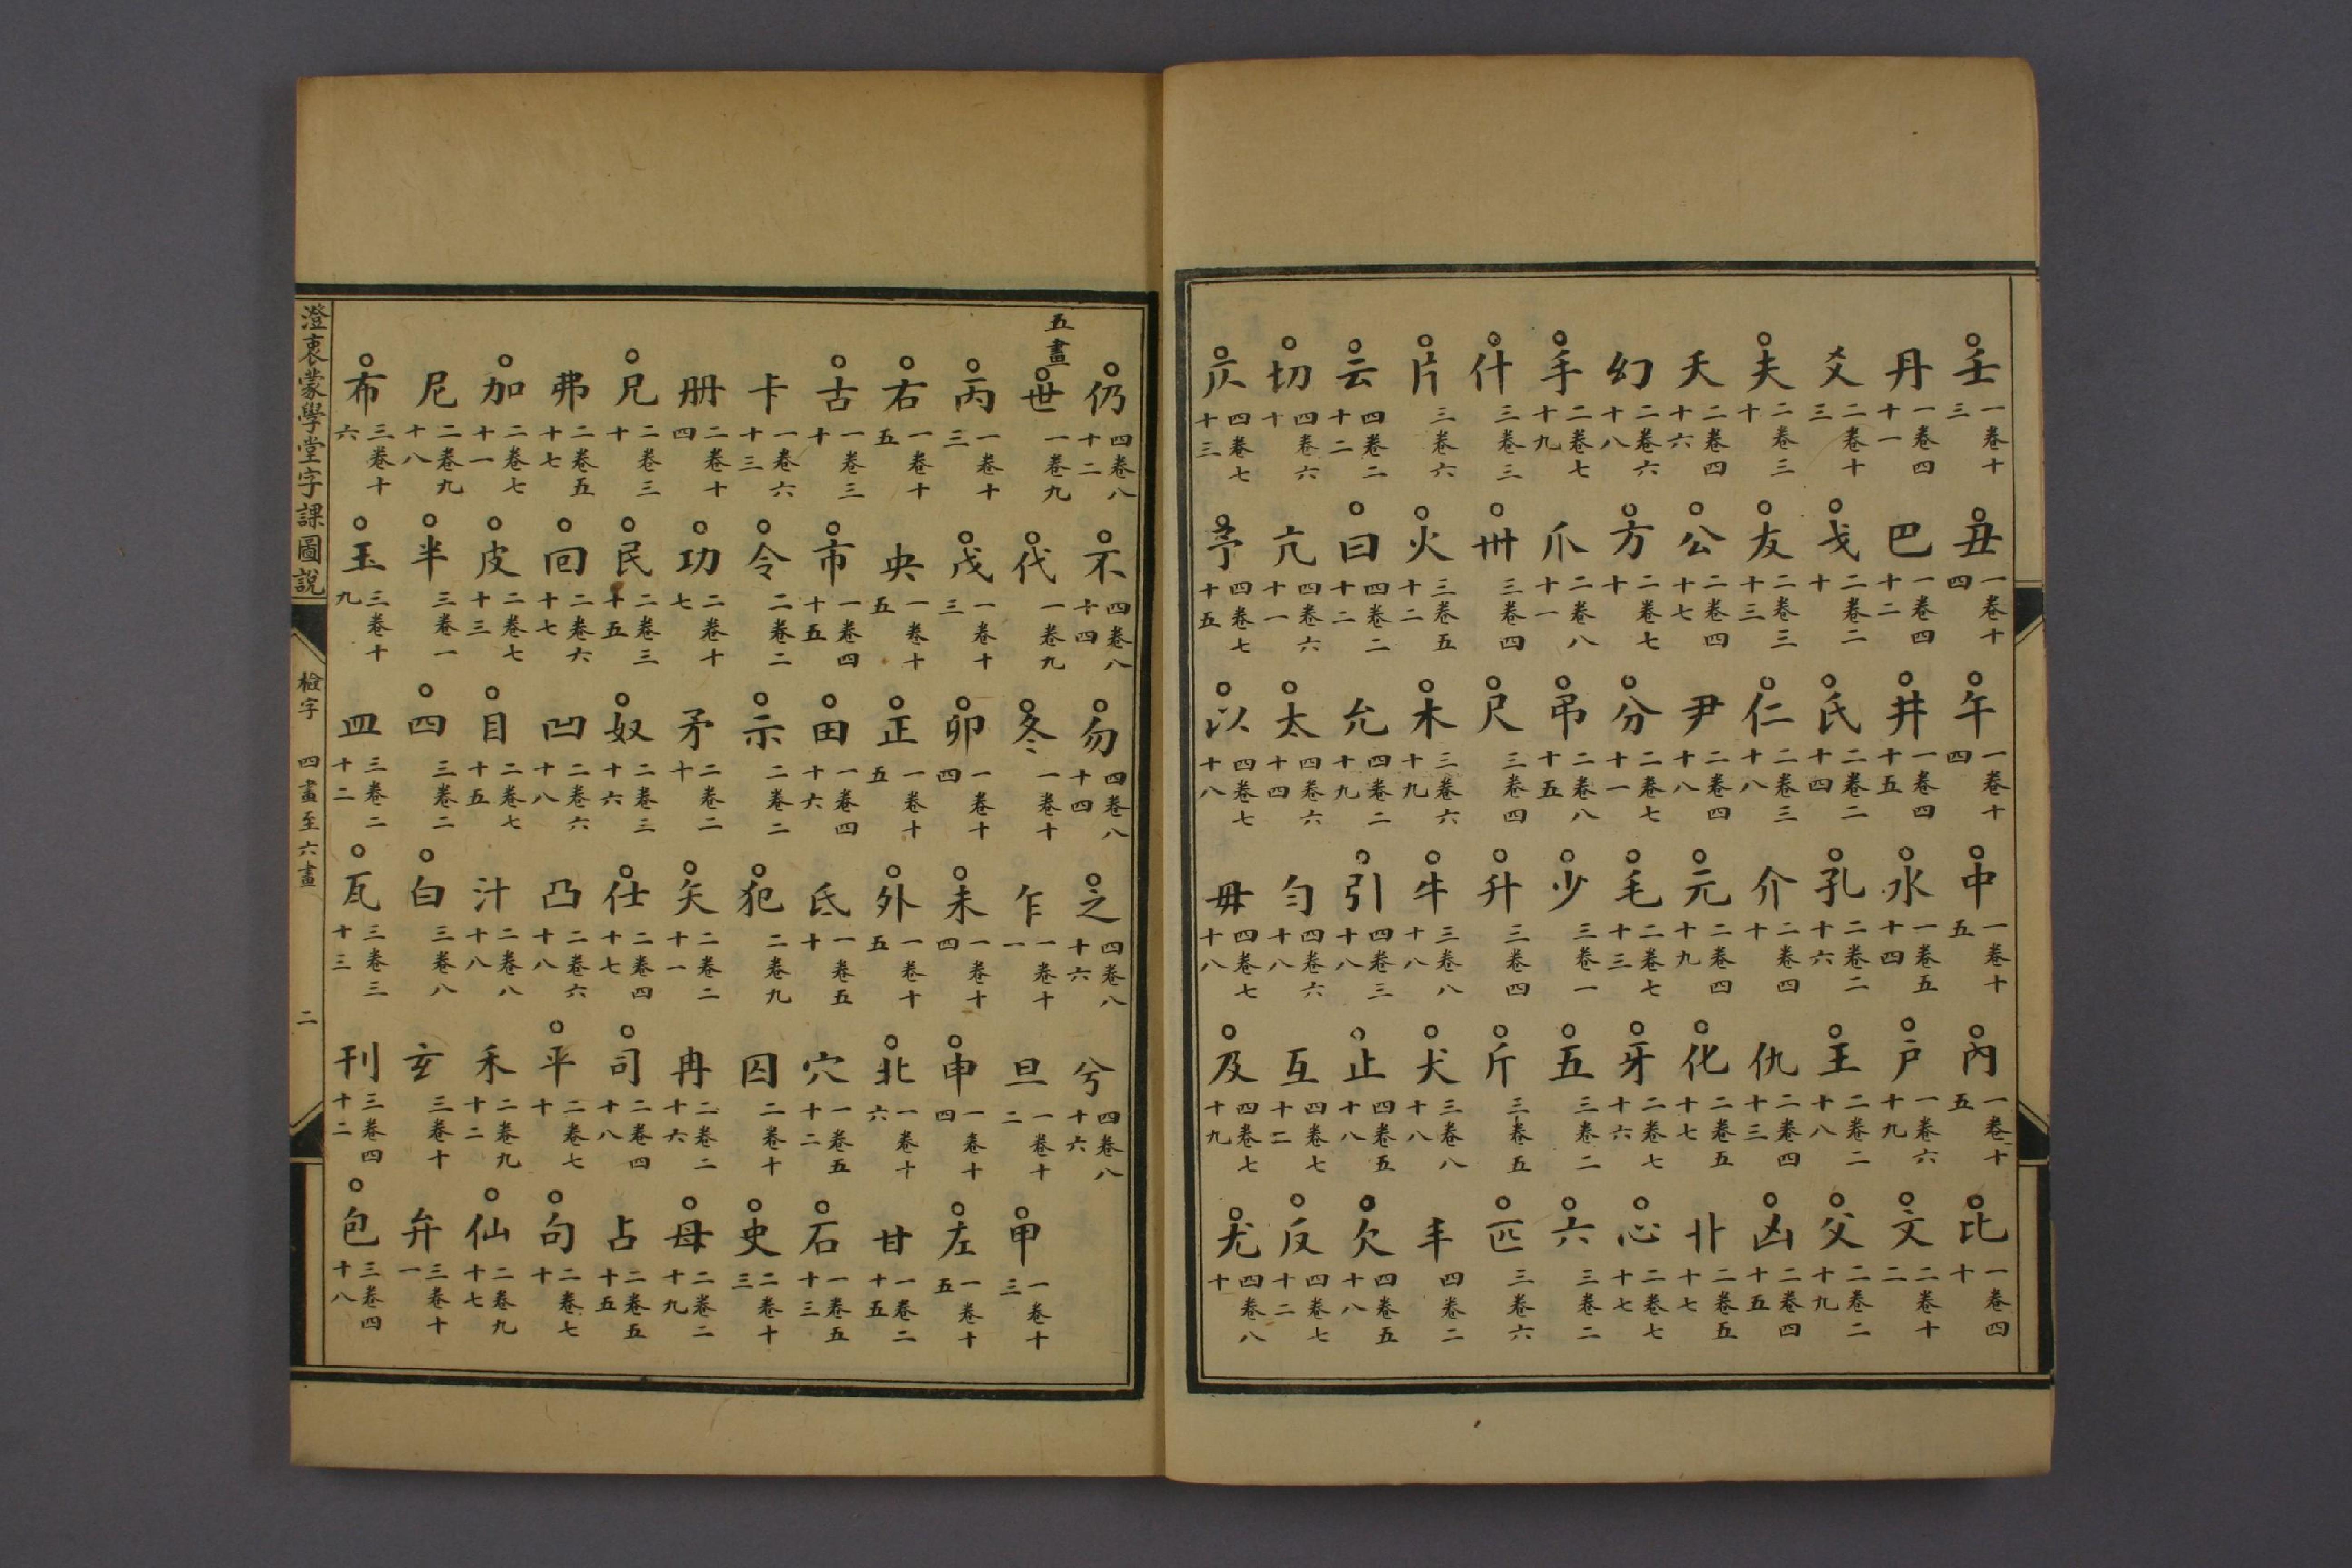 ○壬一卷十三○丑一卷十四○午一卷十四○中一卷十五○內一卷十五○比一卷四十
丹一卷四十一巴一卷四十二○井一卷四十五○水一卷五十四○戶一卷六十九○文二卷十二
爻二卷十三○戈二卷二十○氏二卷二十四○孔二卷二十六○王二卷二十八○父二卷二十九
○夫二卷三十○友二卷三十三○仁二卷三十八介二卷四十仇二卷四十三○凶二卷四十五
夭二卷四十六○公二卷四十七尹二卷四十八○元二卷四十九○化二卷五十七卝二卷五十七
幻二卷六十八○方二卷七十○分二卷七十一○毛二卷七十三○牙二卷七十六○心二卷七十七
○手二卷七十九爪二卷八十一○吊二卷八十五○少三卷一○五三卷二○六三卷二
○什三卷三○卅三卷四○尺三卷四○升三卷四○斤三卷五○匹三卷六
○片三卷六○火三卷五十二○木三卷六十九○牛三卷八十八○犬三卷八十八丰四卷二
○云四卷二十二○曰四卷二十二允四卷二十九○引四卷三十八○止四卷五十八○欠四卷五十八
○切四卷六十亢四卷六十一○太四卷六十四勻四卷六十八互四卷七十二○反四卷七十二
○仄四卷七十三○予四卷七十五○以四卷七十八毋四卷七十八○及四卷七十九○尤四卷八十
○仍四卷八十二○不四卷八十四○勿四卷八十四○之四卷八十六兮四卷八十六
五畫
○世一卷九○代一卷九○冬一卷十乍一卷十一旦一卷十二○甲一卷十三
○丙一卷十三○戊一卷十三○卯一卷十四○未一卷十四○申一卷十四○左一卷十五
○右一卷十五央一卷十五○正一卷十五○外一卷十五○北一卷十六甘一卷二十五
○古一卷三十○市一卷四十五○田一卷四十六氐一卷五十穴一卷五十二○石一卷五十三
卡一卷六十三○令二卷二○示二卷二○犯二卷九囚二卷十○史二卷十三
册二卷十四○功二卷十七矛二卷二十○矢二卷二十一冉二卷二十六○母二卷二十九
○兄二卷三十○民二卷三十五○奴二卷三十六○仕二卷四十七○司二卷四十八占二卷五十五
弗二卷五十七○回二卷六十七凹二卷六十八凸二卷六十八○平二卷七十○句二卷七十
○加二卷七十一○皮二卷七十三○目二卷七十五汁二卷八十八禾二卷九十二○仙二卷九十七
尼二卷九十八○半三卷一○四三卷二○白三卷八玄三卷十弁三卷十一
○布三卷十六○玉三卷十九皿三卷二十二○瓦三卷三十三刊三卷四十二○包三卷四十八
澄衷蒙學堂字課圖說
檢字 四畫至六畫
二